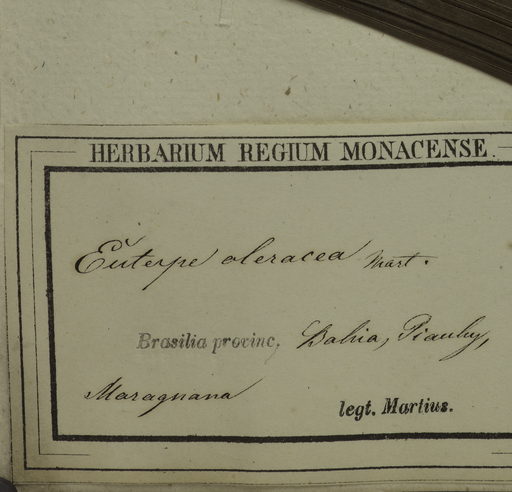 HERBARIUM REGIUM MONACENSE.
Euterpe oleracea Mart.
Brasilia provinc. Bahia, Piauhy,
Maragnana
legt. Martius.